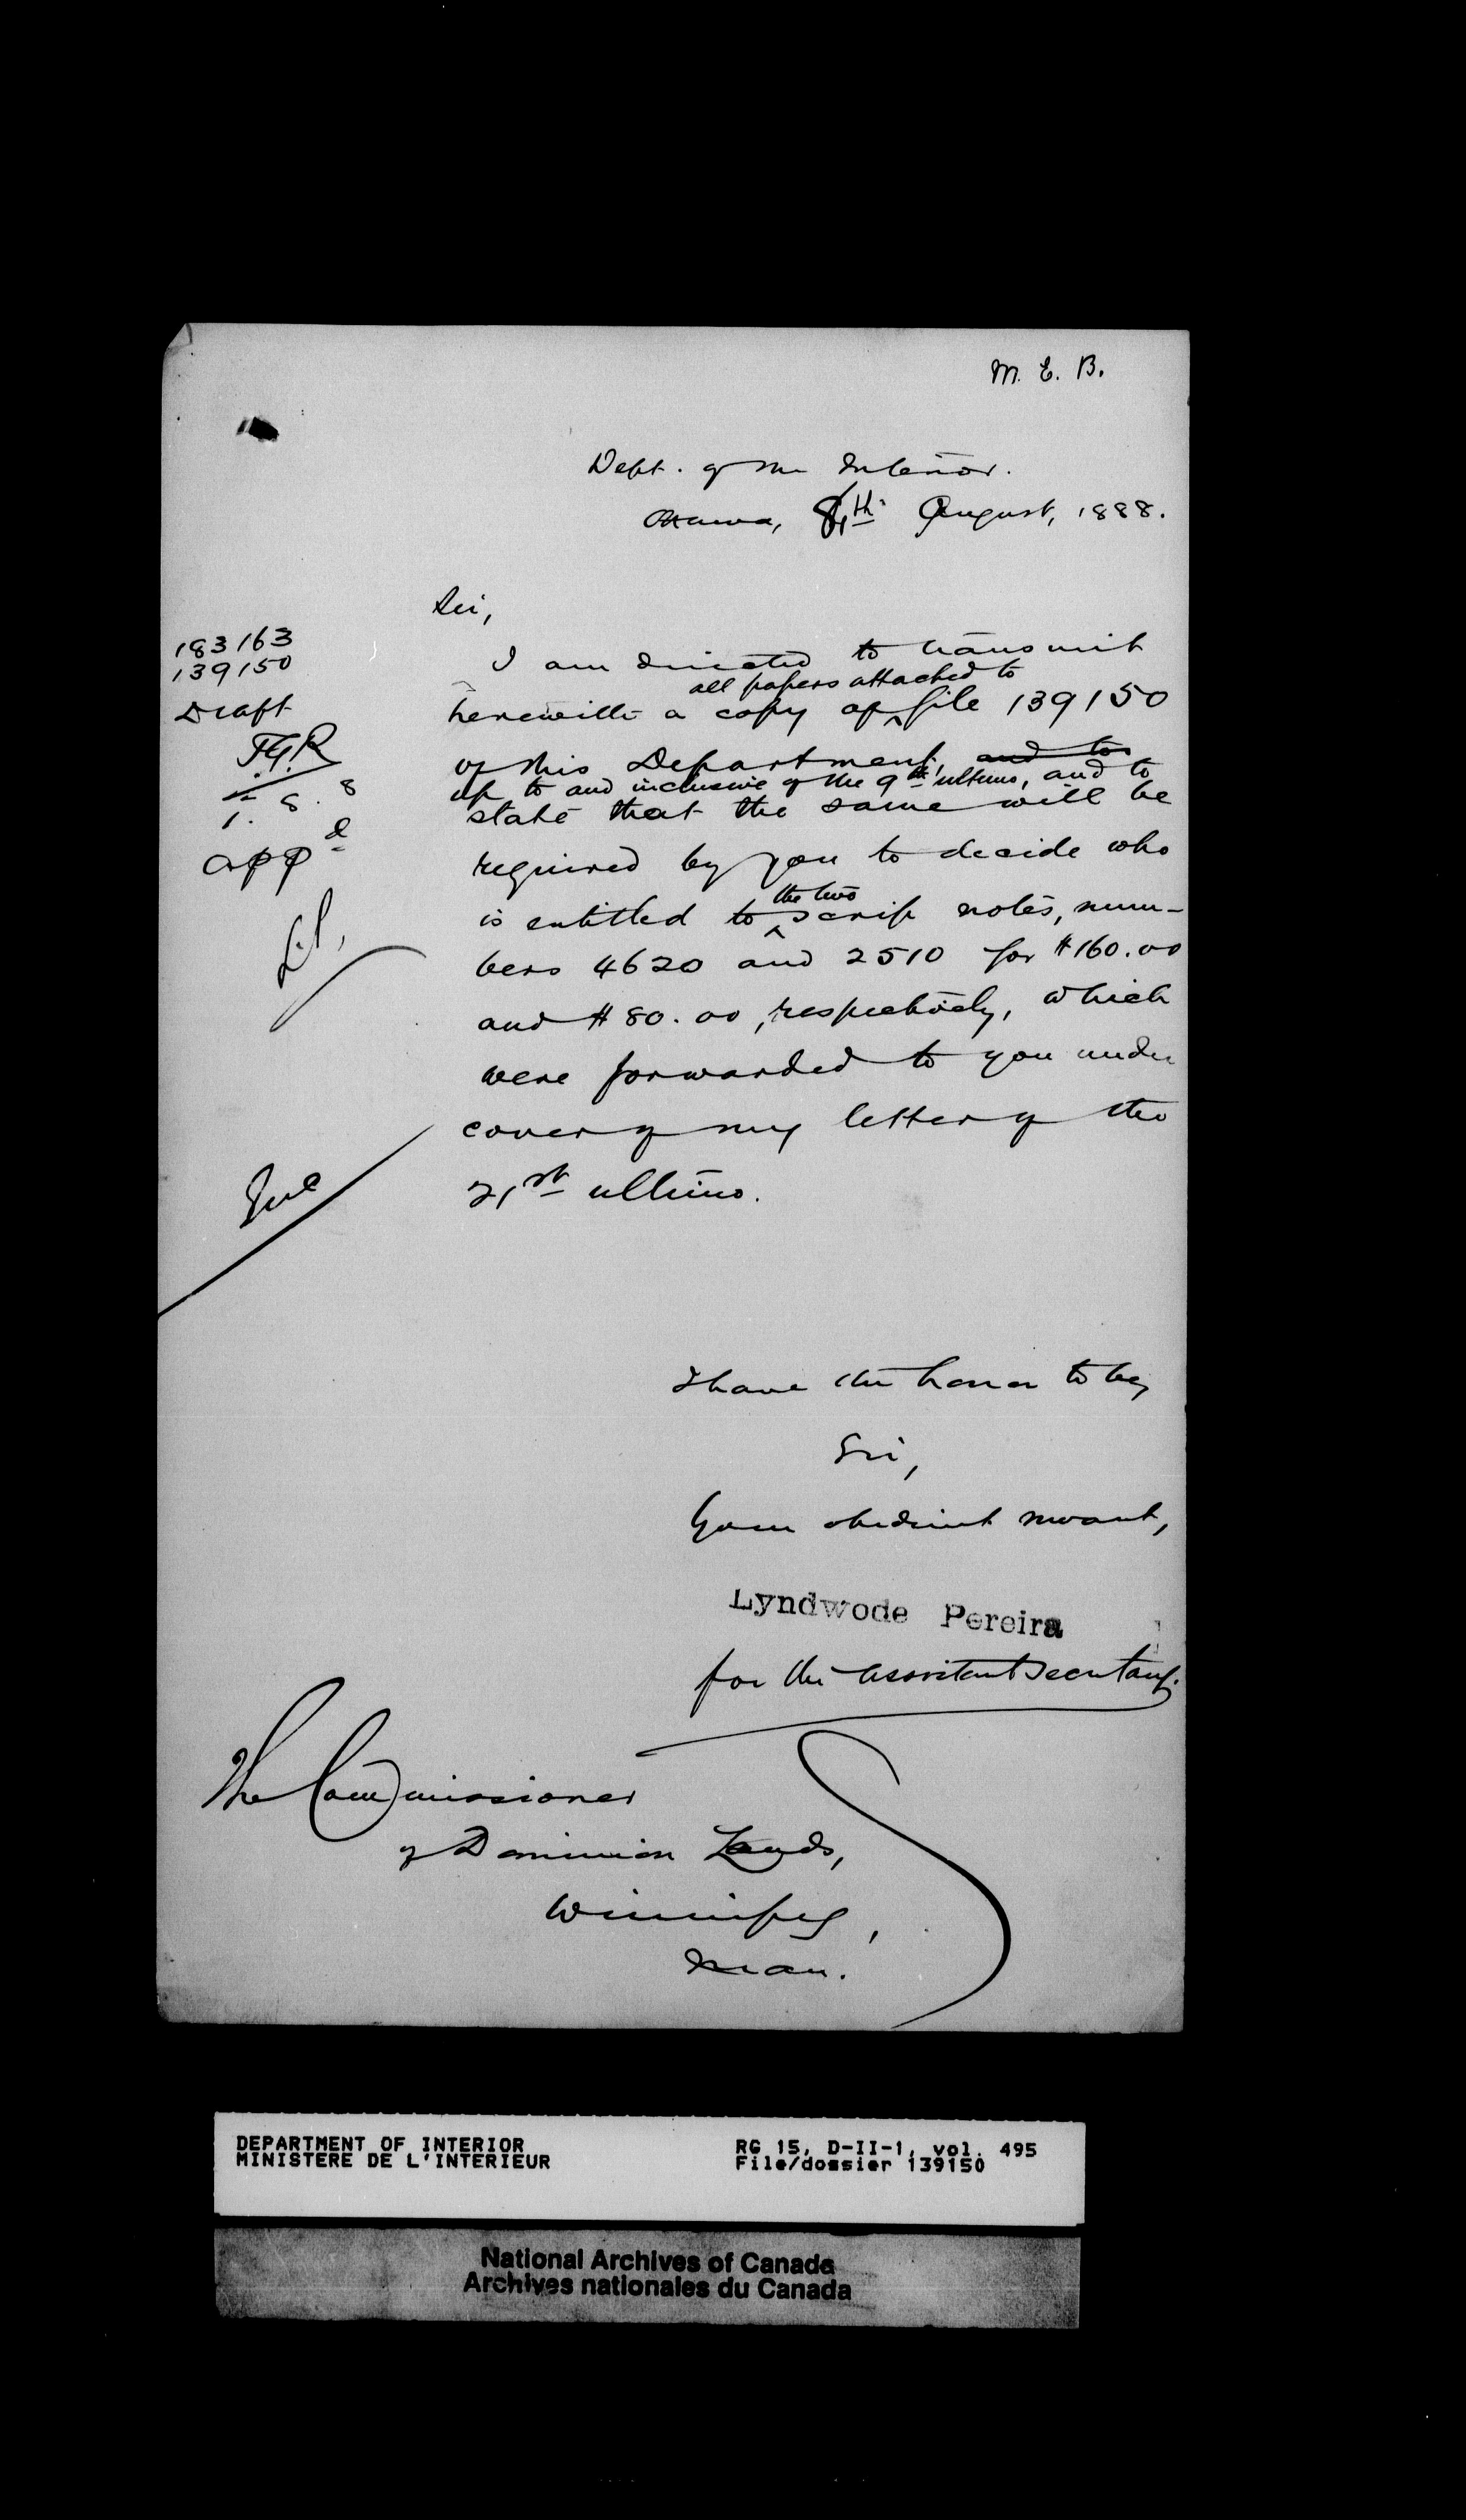 M. E. B.
Dept. of the Interior.
Ottawa, 8th August, 1888.
Sir,
183163
139150
Draft
T.G.R
1. 8. 8
appd
I am directed to transmit
all papers attached to
herewith a copy of file 139150
of this Department, and to
up to and inclusive of the 9th ultimo, and to
state that the same will be
required by you to decide who
the two
is entitled to scrip notes, num-
bers 4620 and 2510 for $160.00
and $80.00, respectively, which
were forwarded to you under
cover of my letter of the
21st ultimo.
I have the honor to be,
Sir,
Your obedient servant,
Lyndwode Pereira
for the Assistant Secretary.
The Commissioner
of Dominion Lands,
Winnipeg,
Man.
DEPARTMENT OF INTERIOR
MINISTERE DE L'INTERIEUR
RG 15, D-II-1, vol. 495
File/dossier 139150
National Archives of Canada
Archives nationales du Canada